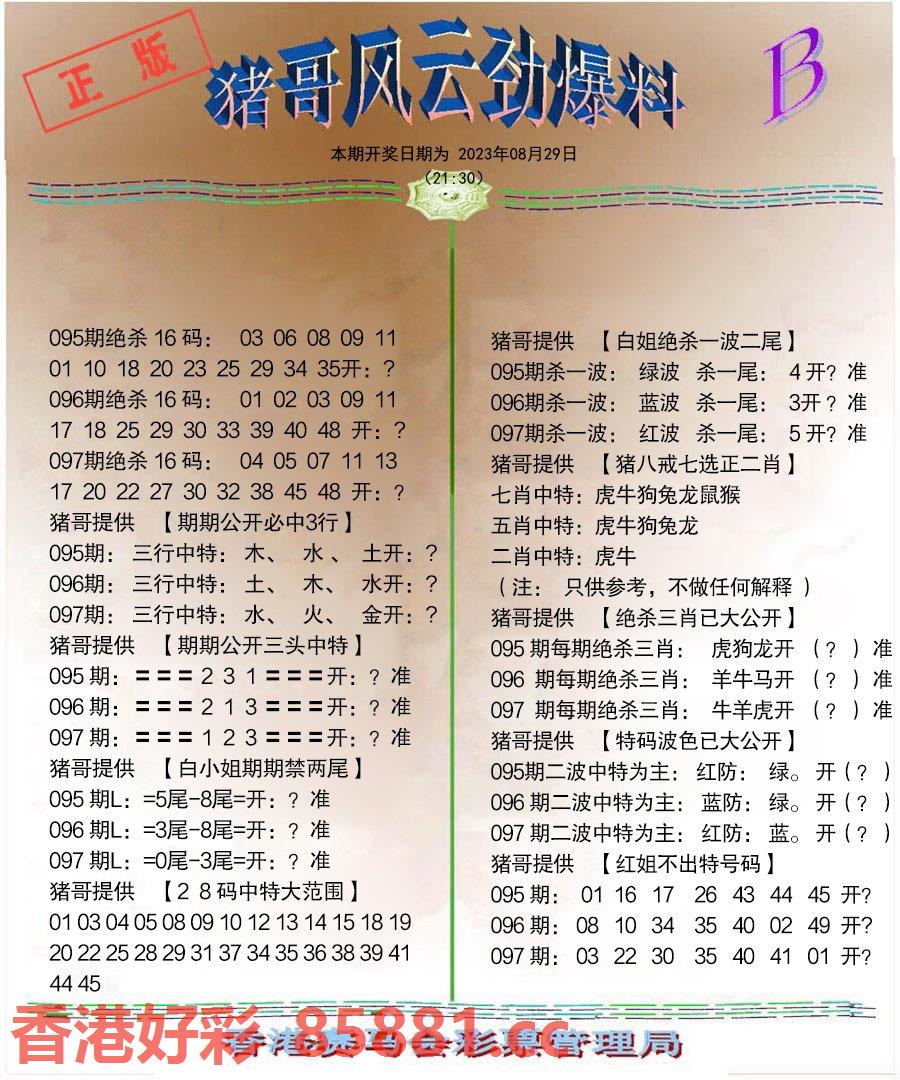 正版
猪哥风云劲爆料
B
本期开奖日期为 2023年08月29日
(21:30)
095期绝杀 16 码： 03 06 08 09 11
01 10 18 20 23 25 29 34 35开：?
096期绝杀 16 码： 01 02 03 09 11
17 18 25 29 30 33 39 40 48 开：?
097期绝杀 16 码： 04 05 07 11 13
17 20 22 27 30 32 38 45 48 开：?
猪哥提供 【期期公开必中3行】
095期： 三行中特： 木、 水 、 土开：?
096期： 三行中特： 土、 木、 水开：?
097期： 三行中特： 水、 火、 金开：?
猪哥提供 【期期公开三头中特】
095 期：＝＝＝２３１＝＝＝开：? 准
096 期：＝＝＝２１３＝＝＝开：? 准
097 期：＝＝＝１２３＝＝＝开：? 准
猪哥提供 【白小姐期期禁两尾】
095 期L：=5尾-8尾=开：? 准
096 期L：=3尾-8尾=开：? 准
097 期L：=0尾-3尾=开：? 准
猪哥提供 【２８码中特大范围】
01 03 04 05 08 09 10 12 13 14 15 18 19
20 22 25 28 29 31 37 34 35 36 38 39 41
44 45
猪哥提供 【白姐绝杀一波二尾】
095期杀一波： 绿波 杀一尾： 4 开? 准
096期杀一波： 蓝波 杀一尾： 3开 ? 准
097期杀一波： 红波 杀一尾： 5 开? 准
猪哥提供 【猪八戒七选正二肖】
七肖中特：虎牛狗兔龙鼠猴
五肖中特：虎牛狗兔龙
二肖中特：虎牛
（注： 只供参考，不做任何解释 ）
猪哥提供 【绝杀三肖已大公开】
095 期每期绝杀三肖： 虎狗龙开 （? ）准
096 期每期绝杀三肖： 羊牛马开 （? ）准
097 期每期绝杀三肖： 牛羊虎开 （? ）准
猪哥提供 【特码波色已大公开】
095期二波中特为主： 红防： 绿。 开（? ）
096 期二波中特为主： 蓝防： 绿。 开（? ）
097 期二波中特为主： 红防： 蓝。 开（? ）
猪哥提供 【红姐不出特号码】
095 期： 01 16 17 26 43 44 45 开?
096 期： 08 10 34 35 40 02 49 开?
097 期： 03 22 30 35 40 41 01 开?
香港好彩 85881.cc
香港赛马会彩票管理局